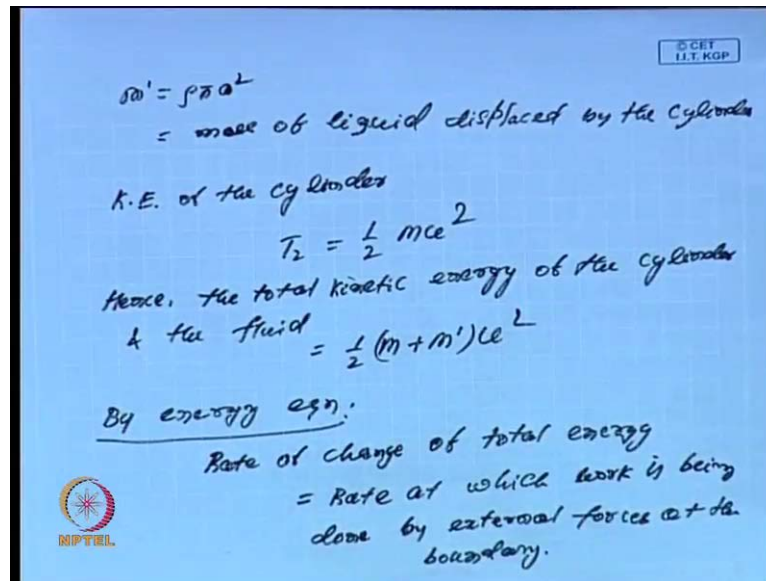 © CET
I.I.T. KGP
m' = ρπa²
= mass of liquid displaced by the cylinder
K.E. of the cylinder
T₂ = 1/2 mu²
Hence, the total kinetic energy of the cylinder
& the fluid = 1/2 (m + m')u²
By energy eqn:
Rate of change of total energy
= Rate at which work is being
done by external forces at the
boundary.
NPTEL